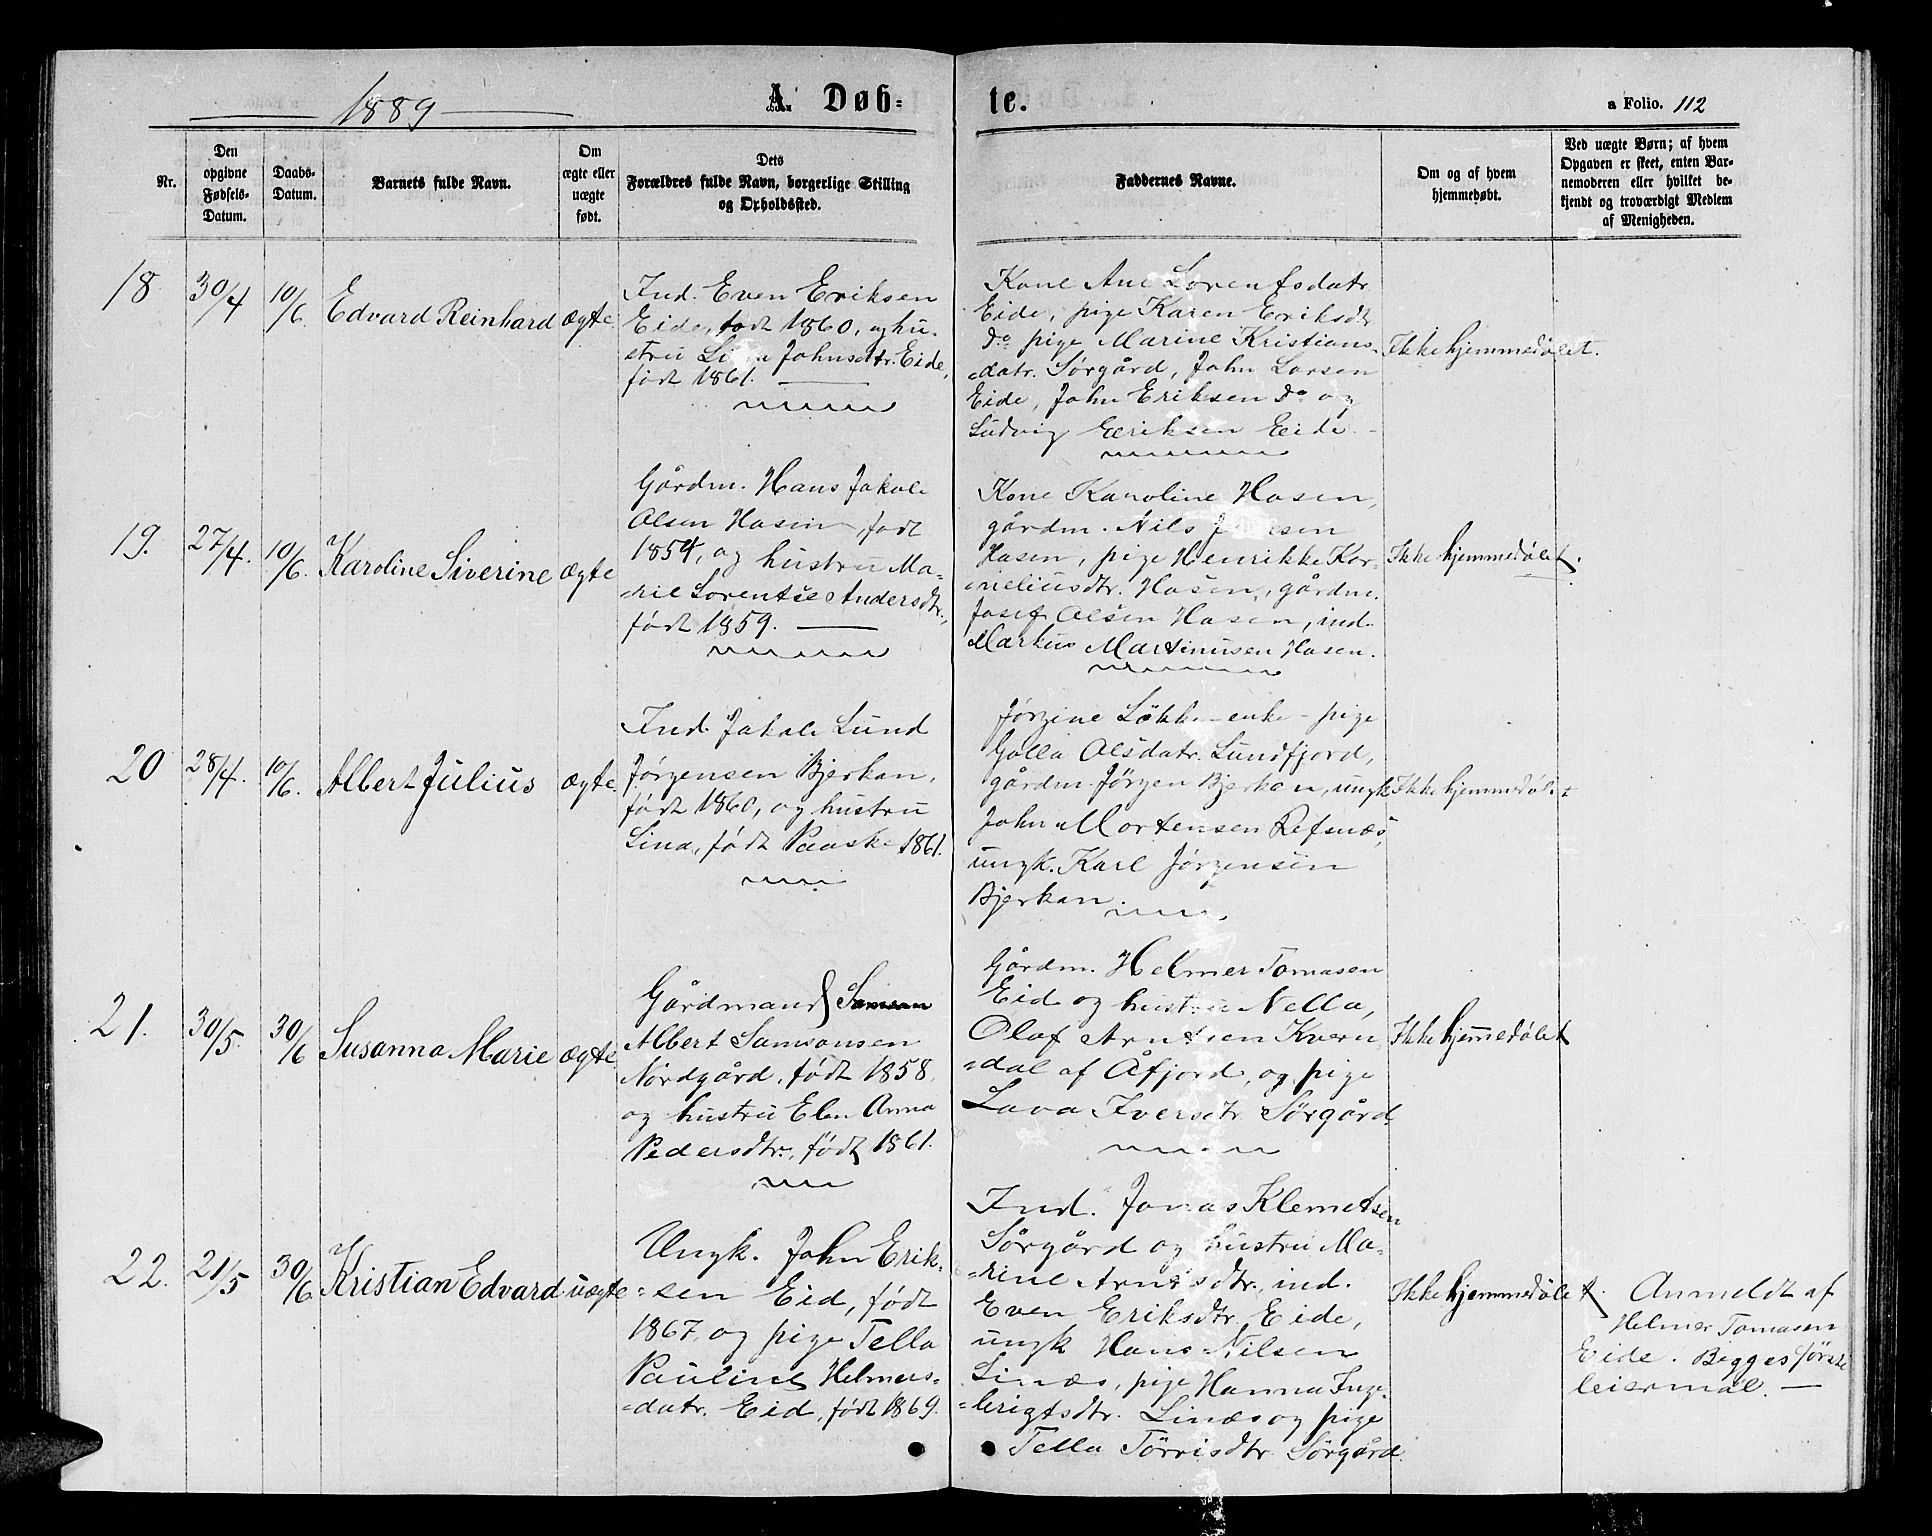 1889
A. Døb-
te.
a Folio. 112
Nr.
Den
opgivne
Fødsels-
Datum.
Daabs-
Datum.
Barnets fulde Navn.
Om
ægte eller
uægte
født.
Dets
Forældres fulde Navn, borgerlige Stilling
og Opholdssted.
Faddernes Navne.
Om og af hvem
hjemmedøbt.
Ved uægte Børn; af hvem
Opgaven er skeet, enten Bar-
nemoderen eller hvilket be-
kjendt og troværdigt Medlem
af Menigheden.
18
30/4
10/6
Edvard Reinhard
ægte
Ind. Even Eriksen
Eide, født 1860, og hu-
stru Johnsdtr. Eide,
født 1861.
Kone Ane Lorentsdatr
Eide, pige Karen Eriksdtr
Do pige Marine Kristians-
datr. Sørgård, John Larsen
Eide, John Eriksen Do og
Ludvig Eriksen Eide
Ikke hjemmedøbt.
19.
27/4.
10/6.
Karoline Siverine
ægte
Gårdm. Hans Jakob
Olsen Hasen, født
1854, og hustru Ma-
rie Lorentse Andersdtr.,
født 1859.
Kone Karoline Hasen,
gårdm. Nils
Hasen, pige Henrikke Kor-
neliusdtr. Hasen, gårdm.
Josef Olsen Hasen, ind.
Markus Martinusen Hasen.
Ikke hjemmedøbt.
20
28/4.
10/6.
Albert Julius
ægte.
Ind. Jakob Lund
Jørgensen Bjerkan,
født 1860, og hustru
Lina, født Paaske 1861.
Jørgine enke - pige
Golla Olsdatr. Lundfjord,
gårdm. Jørgen Bjerkan, ungk
John Mortensen Refsnæs,
ungk. Karl Jørgensen
Bjerkan.
Ikke hjemmedøbt
21.
30/5.
30/6
Susanna Marie
ægte
Gårdmand Samson
Albert Samsonsen
Nordgård, født 1858,
og hustru Elen Anna
Pedersdtr., født 1861.
Gårdm. Helmer Tomasen
Eid og hustru Nella,
Olaf Arntsen Kvern-
dal af Åfjord, og pige
Lava Iversdtr. Sørgård.
Ikke hjemmedøbt
22.
21/5
30/6
Kristian Edvard
uægte
Ungk. John Erik-
sen Eid, født
1867, og pige Tella
Pauline Helmers-
datr. Eid, født 1869.
Ind. Jonas Klemetsen
Sørgård og hustru Ma-
rine Arntsdtr., ind.
Even Eriksdtr. Eide,
ungk Hans Nilsen
Linæs, pige Hanna Inge-
brigtsdtr. Linæs og pige
Tella Tørrisdtr Sørgård.
Ikke hjemmedøbt.
Anmeldt af
Helmer Tomasen
Eide. Begges første
leiermål.